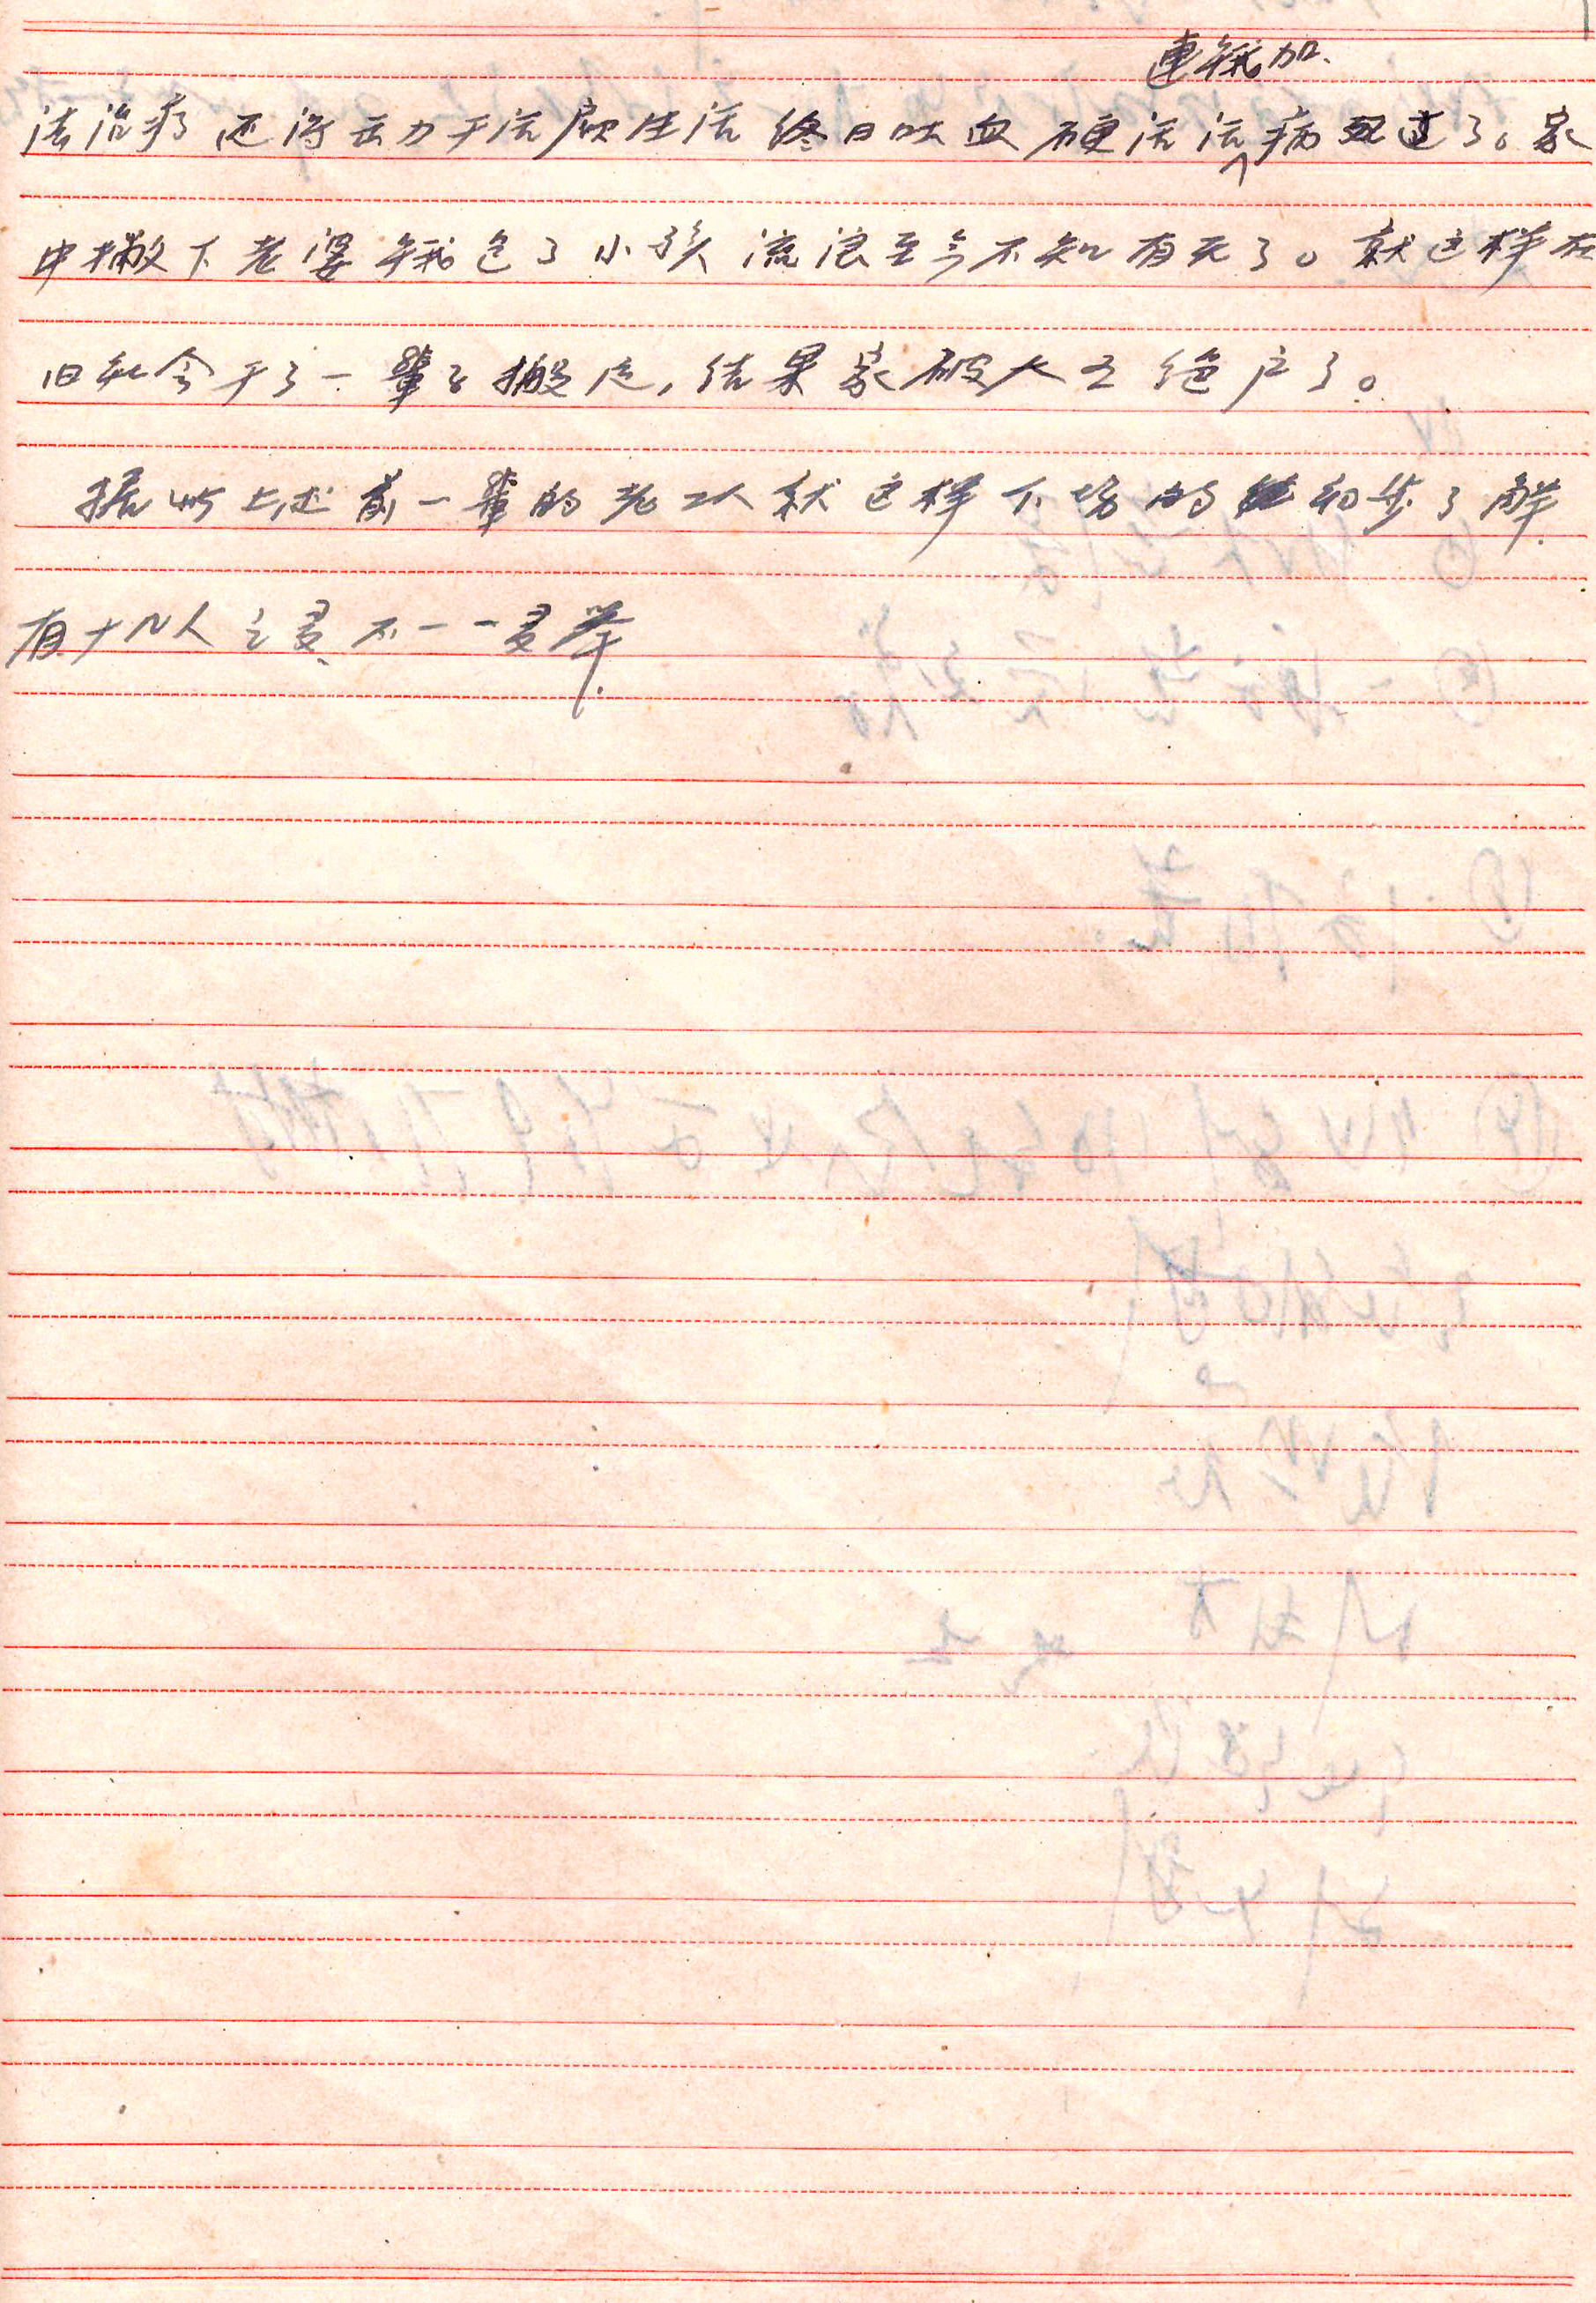 連餓加
法治疗还得去力干活顾生活终日吐血硬活活病死过了。家
中撇下老婆餓包了小孩流浪至今不知有无了。就这样在
旧社会干了一輩子搬运,结果家破人亡绝户了。
据以上述前一輩的老工人就这样下场的初步了解
有十几人之夛不一一夛举